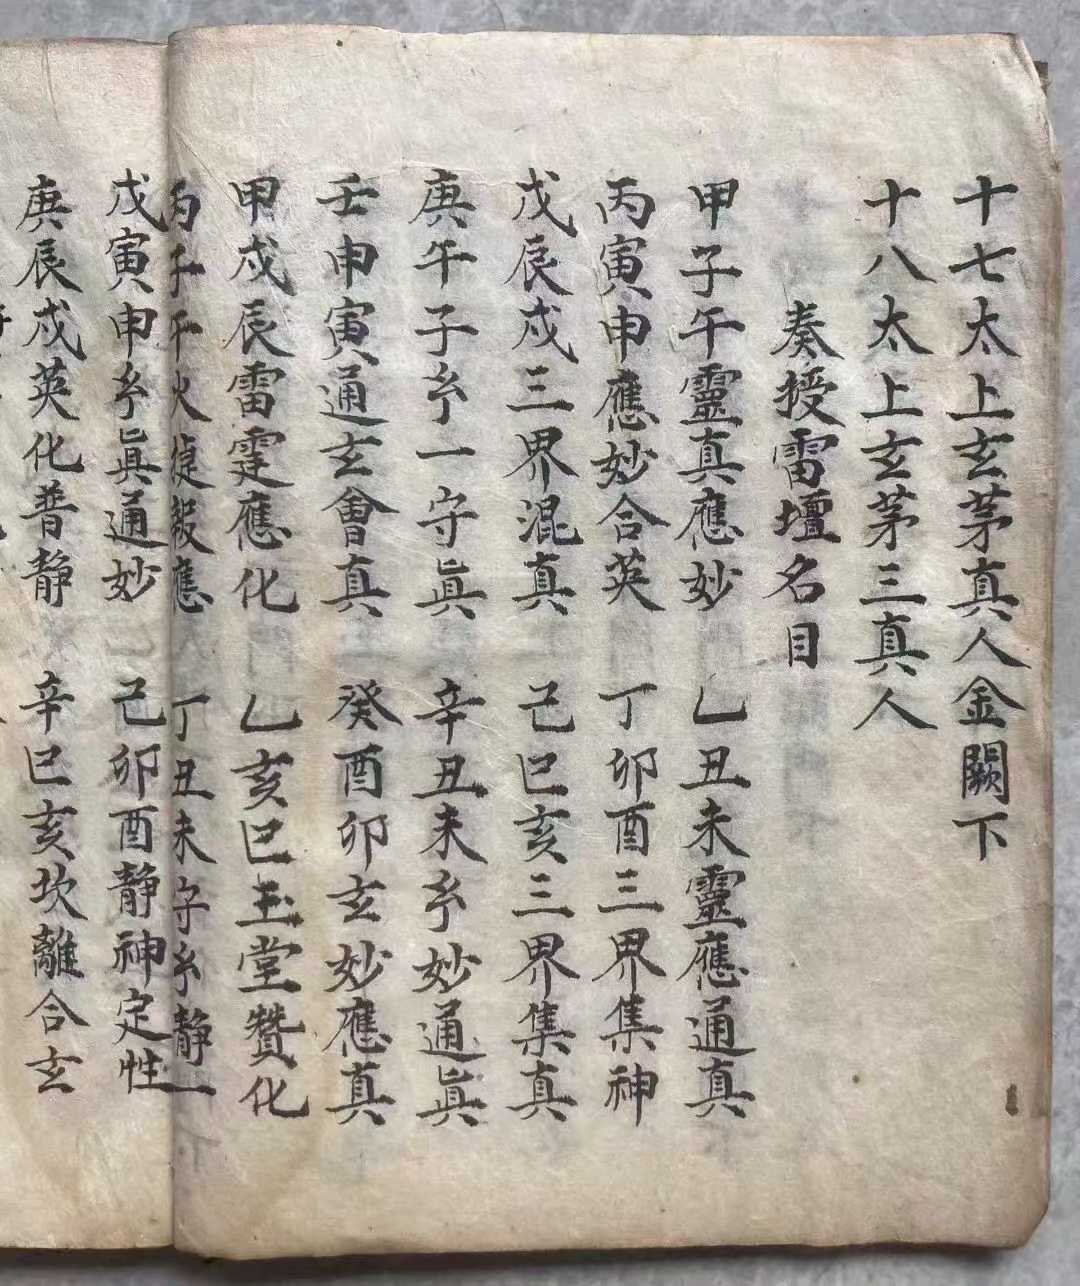 十七太上玄茅真人金闕下
十八太上玄茅三真人
奏授雷壇名目
甲子午靈真應妙 乙丑未靈應通真
丙寅申應妙合英 丁卯酉三界集神
戊辰戍三界混真 己巳亥三界集真
庚午子乡一守眞 辛丑未乡妙通眞
壬申寅通玄會真 癸酉卯玄妙應真
甲戍辰雷霆應化 乙亥巳玉堂贊化
丙子午火 報應 丁丑未守乡静一
戊寅申乡眞通妙 己卯酉静神定性
庚辰戍英化普静 辛巳亥坎離合玄